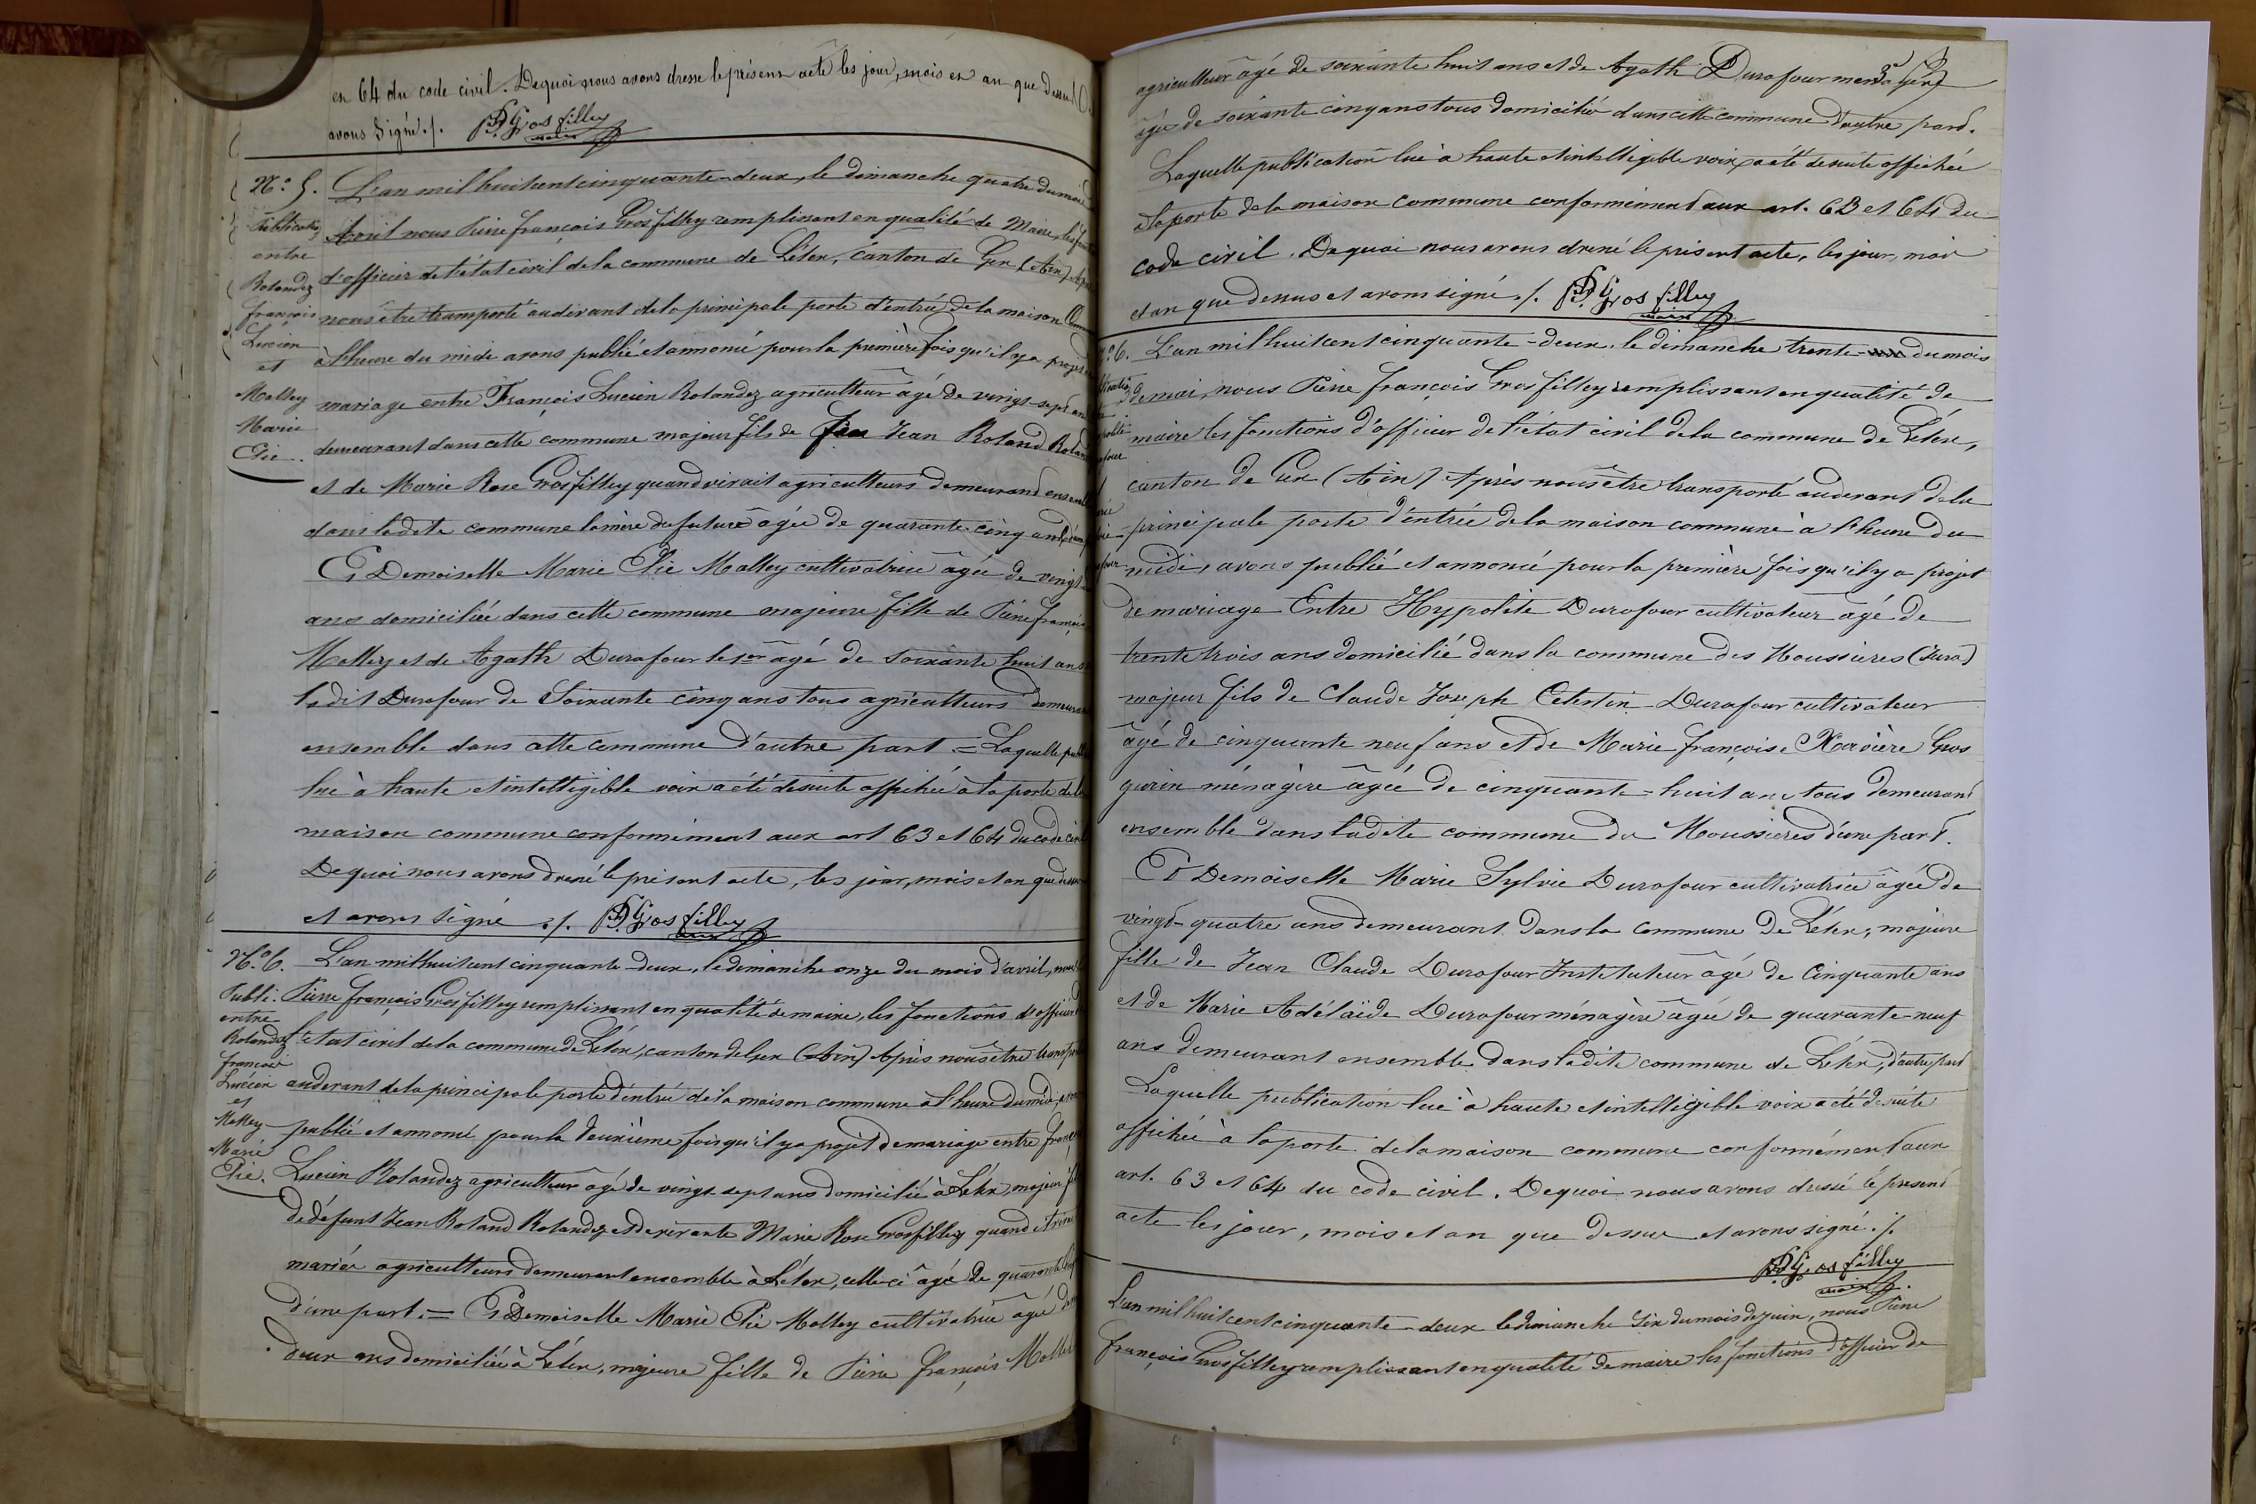 en 64 du code civil. De quoi nous avons dressé le présent acte les jour, mois et an que dessus
avons signé ./. P.F. Grosfilley
maire
N.° 5.
Publication
entre
Rolandez
françois
Lucien
et
Molley
Marie
Elie.
L'an mil huit cent cinquante-deux, le dimanche quatre du mois
Avril nous Pierre françois Grosfilley remplissant en qualité de Maire, les
d'officier de l'état civil de la commune de Lélex, canton de Gex (Ain)
nous être transporté audevant de la principale porte d'entrée de la maison
à l'heure du midi avons publié et annoncé pour la première fois qu'il y a projet
mariage entre François Lucien Rolandez agriculteur âgé de vingt-sept ans
demeurant dans cette commune majeur fils de Jean Roland
et de Marie Rose Grosfilley quand vivait agriculteurs demeurand
dans ladite commune la mère du futur âgée de quarante cinq ans
Et Demoiselle Marie Elie Molley cultivatrice âgée de vingt
ans domiciliée dans cette commune majeure fille de Pierre
Molley et de Agath Durafour le 1er âgé de soixante huit ans
ladit Durafour de Soixante cinq ans tous agriculteurs
ensemble dans cette commune d'autre part = Laquelle
lue à haute et intelligible voix a été desuite affichée à la porte de
maison commune conformément aux art 63 et 64 du code
De quoi nous avons dressé le présent acte, les jour, mois et an que
et avons signé ./. P.F. Grosfilley
N.° 6.
Publi.
entre
Rolandez
françois
Lucien
et
Molley
Marie
Elie.
L'an mil huit cent cinquante-deux, le dimanche onze du mois d'avril, nous
Pierre françois Grosfilley remplissant en qualité de maire, les fonctions
l'état civil de la commune de Lélex, canton de Gex (Ain) Après nous être
audevant de la principale porte d'entrée de la maison commune à l'heure du midi,
publié et annoncé pour la deuxième fois qu'il y a projet de mariage entre
Lucien Rolandez agriculteur âgé de vingt sept ans domicilié à Lélex, majeur
de défunt Jean Roland Rolandez et de vivante Marie Rose Grosfilley quand
mariée agriculteurs demeurent ensemble à Lélex, celle-ci âgée de quarante
d'une part. = Et Demoiselle Marie Elie Molley cultivatrice âgée
deux ans domiciliée à Lélex, majeure fille de Pierre françois
agriculteur âgé de soixante huit ans et de Agath Durafour
âgée de soixante cinq ans tous domicilié dans cette commune d'autre part.
Laquelle publication lue à haute et intelligible voix a été desuite affichée
à la porte de la maison commune conformément aux art. 63 et 64 du
code civil. De quoi nous avons dressé le présent acte, les jour, mois
et an que dessus et avons signé ./. P.F. Grosfilley
maire
L'an mil huit cent cinquante-deux, le dimanche trente du mois
de mai, nous Pierre françois Grosfilley remplissant en qualité de
maire les fonctions d'officier de l'état civil de la commune de Lélex,
canton de Gex (Ain) Après nous être transporté audevant de la
principale porte d'entrée de la maison commune à l'heure du
midi, avons publié et annoncé pour la première fois qu'il y a projet
de mariage Entre Hypolite Durafour cultivateur âgé de
trente trois ans domicilié dans la commune des Moussieres (Jura)
majeur fils de Claude Joseph Celestin Durafour cultivateur
âgé de cinquante neuf ans et de Marie françoise Xavière Gros
gurin ménagère âgée de cinquante-huit ans tous demeurant
ensemble dans ladite commune du Moussieres d'une part.
Et Demoiselle Marie Sylvie Durafour cultivatrice âgée de
vingt-quatre ans demeurant dans la commune de Lélex, majeure
fille de Jean Claude Durafour Instituteur âgé de Cinquante ans
et de Marie Adélaïde Durafour ménagère âgée de quarante-neuf
ans demeurant ensemble dans ladite commune de Lélex, d'autre part
Laquelle publication lue à haute et intelligible voix a été desuite
affichée à la porte de la maison commune conformément aux
art. 63 et 64 du code civil. De quoi nous avons dressé le présent
acte les jour, mois et an que dessus et avons signé ./.
P.F. Grosfilley
maire
L'an mil huit cent cinquante-deux le dimanche six du mois de juin, nous Pierre
françois Grosfilley remplissant en qualité de maire les fonctions d'officier de